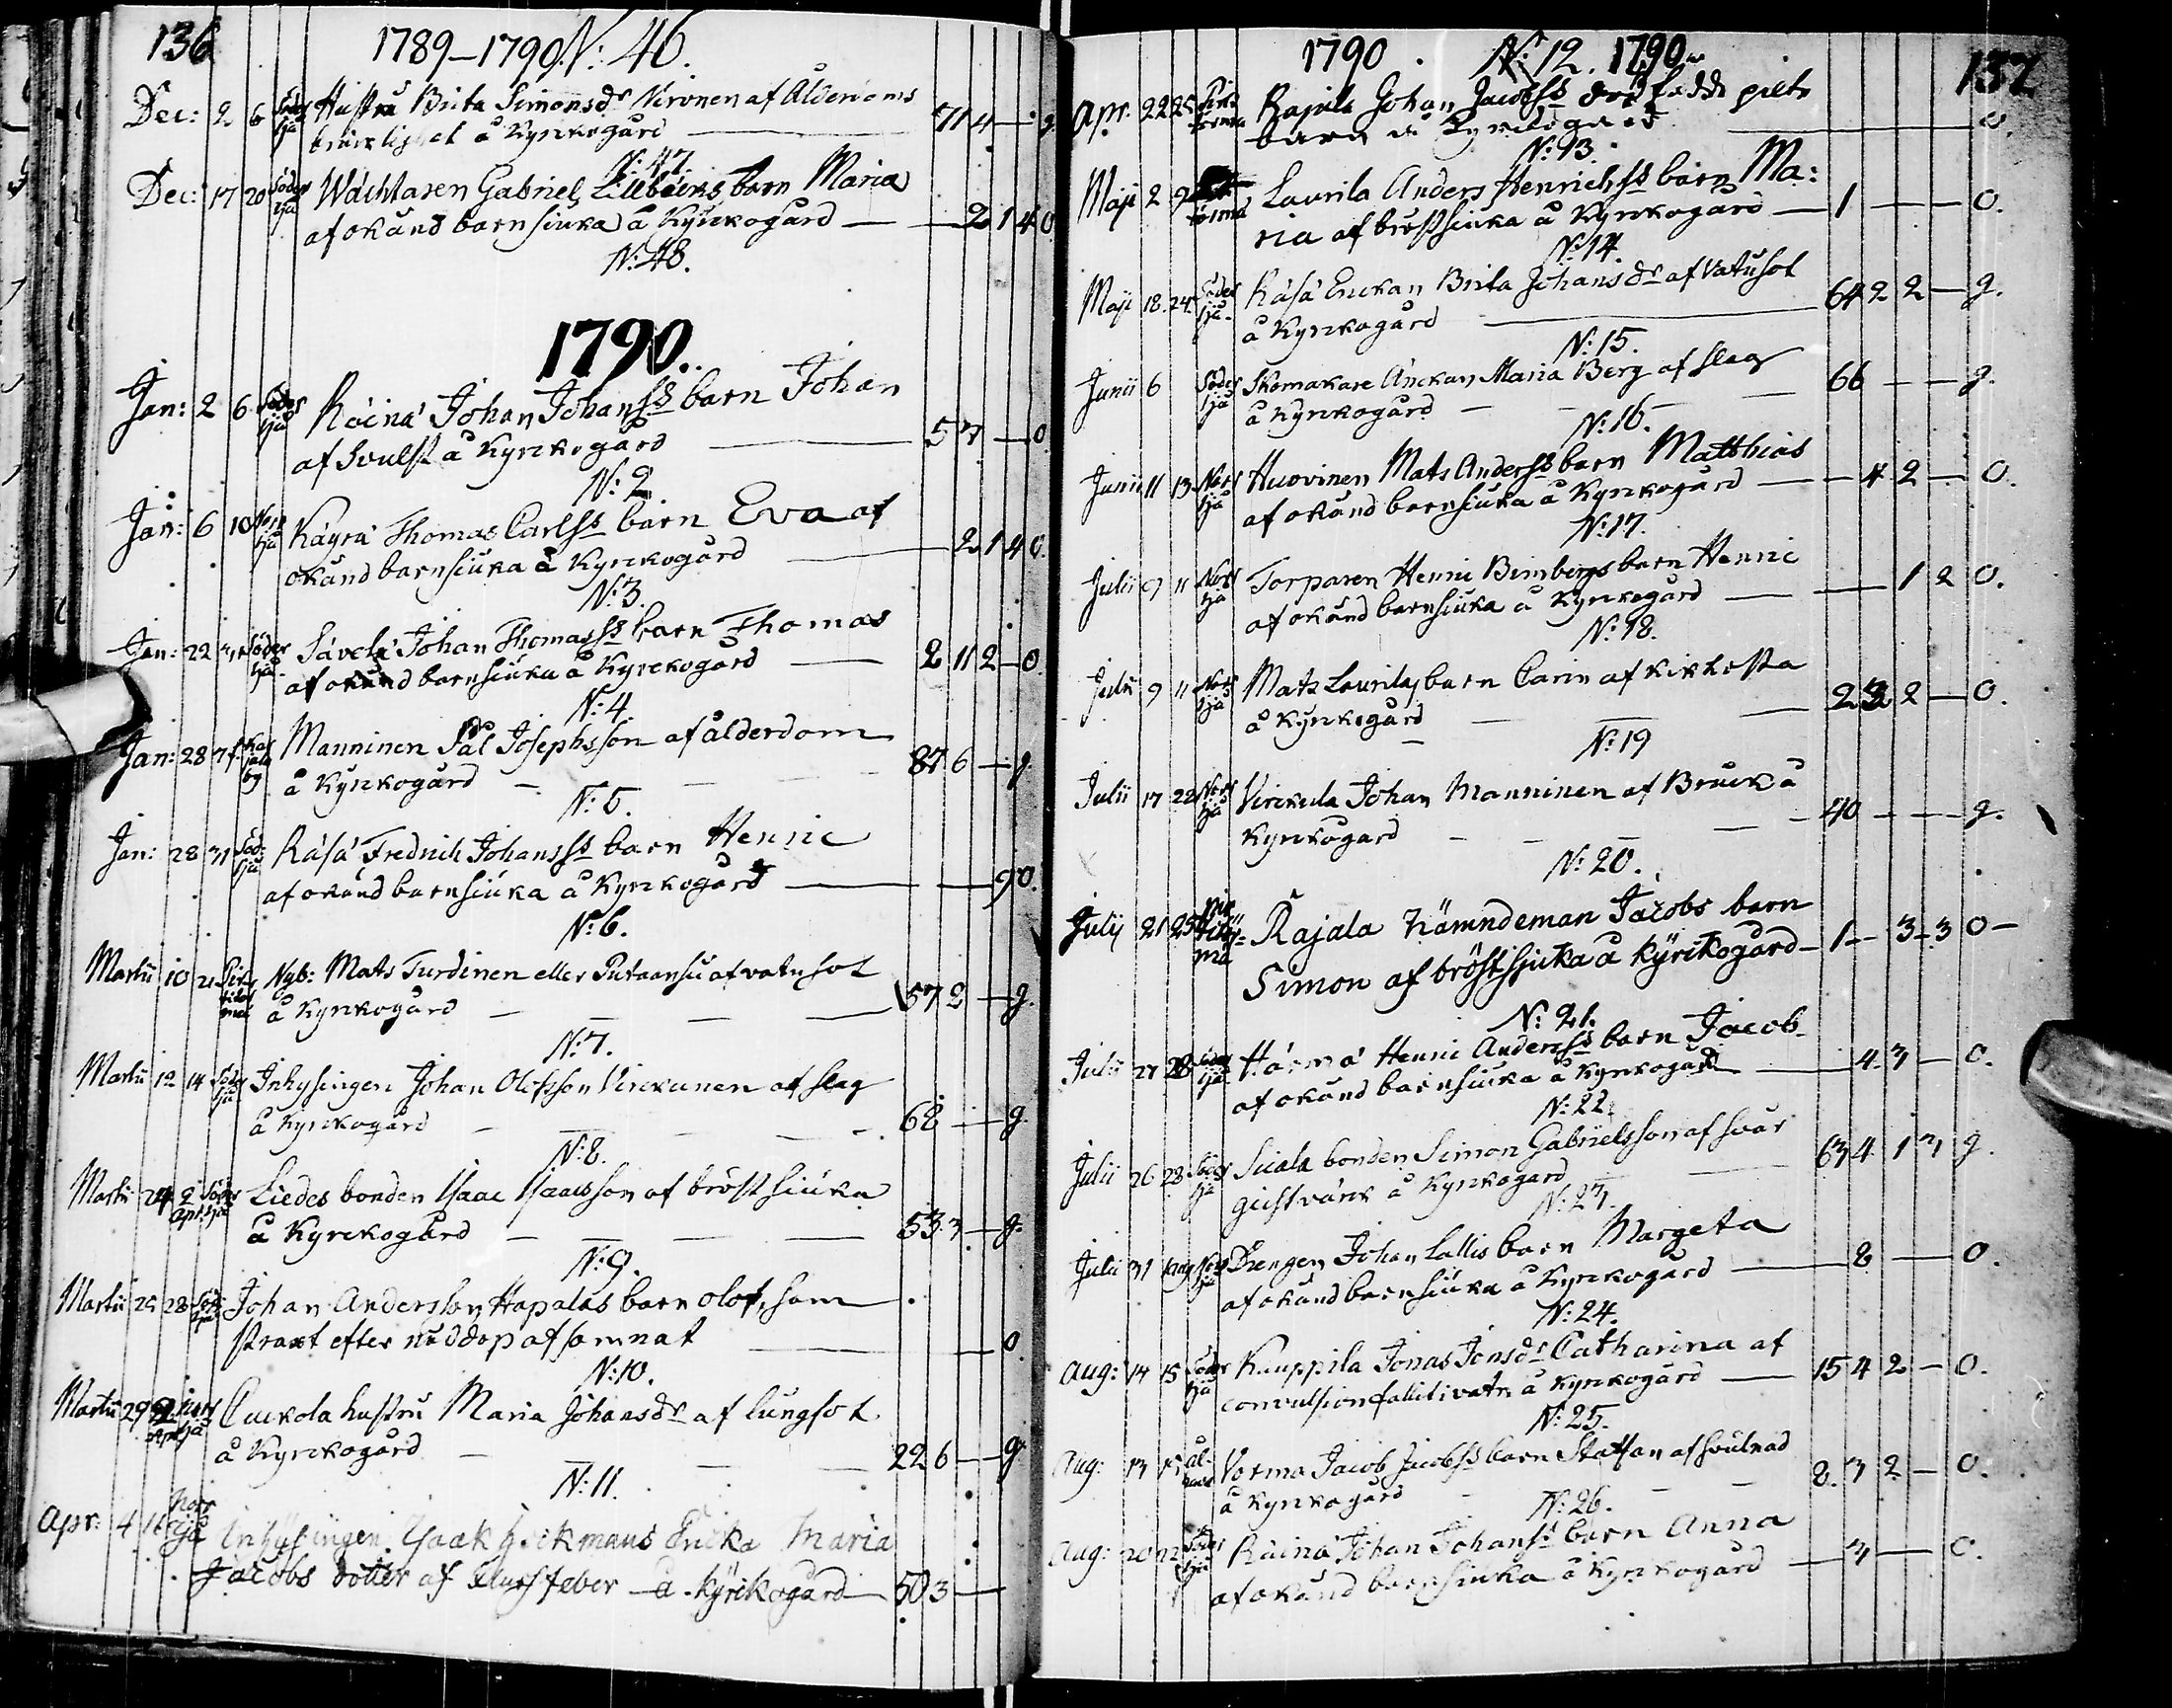 136
1789–1790 N: 46.
Dec: 2 6 Söder sjä Hustru Brita Simonsdr Vironen af Ålderdoms
bräcklighet å Kyrckogård — 71 4 — g.
N: 47.
Dec: 17 20 Söder sjä Wächtaren Gabriel Lillbäcks barn Maria
af okänd barnsiuka å Kyrckogård — 2 1 4 0
N: 48.
1790.
Jan: 2 6 Söder sjä Räinä Johan Johanss barn Johan
af Svulst å Kyrckogård — 5 7 — 0
N: 2.
Jan: 6 10 Norr sjä Käyrä Thomas Carlss barn Eva af
okänd barnsiuka å Kyrckogård — 2 1 4 0
N: 3.
Jan: 22 Söder sjä Sävelä Johan Thomass barn Thomas
af okänd barnsiuka å Kyrckogård — 2 11 2 — 0
N: 4.
Jan: 28 7 f. Kar jala by Manninen Pål Josephsson af ålderdom
å Kyrckogård — 87 6 — g
N: 5.
Jan: 28 31 Söd: sjä Räsä Fredrich Johanss barn Henric
af okänd barnsiuka å Kyrckogård — 9 0.
N: 6.
Martii 10 21 Pir tiko mä Nyb: Mats Turdinen eller Putaansu af vatusot
å Kyrckogård — 57 2 — g.
N: 7.
Martii 12 14 Söder sjä Inhysingen Johan Olofsson Virckunen af slag
å Kyrckogård — 62 — g.
N: 8.
Martii 24 2 Apr. Söder sjä Liedes bonden Isaac Isaacsson af bröst siuka
å Kyrckogård — 53 3 — g.
N: 9.
Martii 25 28 Söder sjä Johan Andersson Hapalas barn Olof, som
straxt efter nåddop afsomnat — 0
N: 10.
Martii 29 2 Apr. Norr sjä Cuckola hustru Maria Johansdr af lungsot
å Kyrckogård — 22 6 — g
N: 11.
Apr: 4 11 Norr sjä Inhysingen Isaak Hickmans Encka Maria
Jacobs dotter af feber å kyrikogård — 50 3 —
137
1790. N: 12. 1790.
Apr: 22 25 Rajala Johan Jacobss dödfödde pilts
barn å Kyrckogård — 0.
N: 13.
Maji 2 9 Laurila Anders Henrichss barn Ma:
ria af bröstsiuka å Kyrckogård — 1 — 0.
N: 14.
Maji 18. 24. Söder sjä. Räsä Enckan Brita Johansdr af Vatusot
å Kyrckogård — 64 2 2 — g.
N: 15.
Junii 6 Söder sjä Skomakare Änckan Maria Berg af slag
å Kyrckogård — 66 — g.
N: 16.
Junii 11 13 Norr sjä Huovinen Mats Anderss barn Matthias
af okänd barnsiuka å Kyrckogård — 4 2 — 0.
N: 17.
Julii 9 11 Norr sjä Torparen Henric Bimbergs barn Henric
af okänd barnsiuka å Kyrckogård — 1 2 0.
N: 18.
Julii 9 11 Norr sjä Mats Laurilas barn Carin af kikhosta
å Kyrckogård — 2 3 2 — 0.
N: 19
Julii 17 22 Norr sjä Virckula Johan Manninen af Bråck å
Kyrckogård — 40 — g.
N: 20.
Julij 21 25 Pir tikö: mä Rajala Nämndeman Jacobs barn
Simon af bröstsjuka å kyrikogård — 1 — 3 – 3 0 —
N: 21.
Julii 27 28 Söder sjä Härmä Henric Anderss barn Jacob
af okänd barnsiuka å Kyrckogård — 4 3 — 0.
N: 22.
Julii 26 28 Söder sjä Sicala bonden Simon Gabrielsson af svår
gichtvärck å Kyrckogård — 63 4 1 3 g.
N: 23.
Julii 31 1 Aug Norr sjä Drengen Johan Lallis barn Margeta
af okänd barnsiuka å Kyrckogård — 2 — 0.
N: 24.
Aug: 14 15 Söder sjä Kauppila Jonas Jonsdr Catharina af
convulsion å Kyrckogård — 15 4 2 — 0.
N: 25.
Aug: 13 15 Vorma Jacob Jacobss barn Staffan af svulnad
å Kyrckogård — 2 3 2 — 0.
N: 26.
Aug: 20 22 Söder sjä Räinä Johan Johanss barn Anna
af okänd barnsiuka å Kyrckogård — 3 — 0.